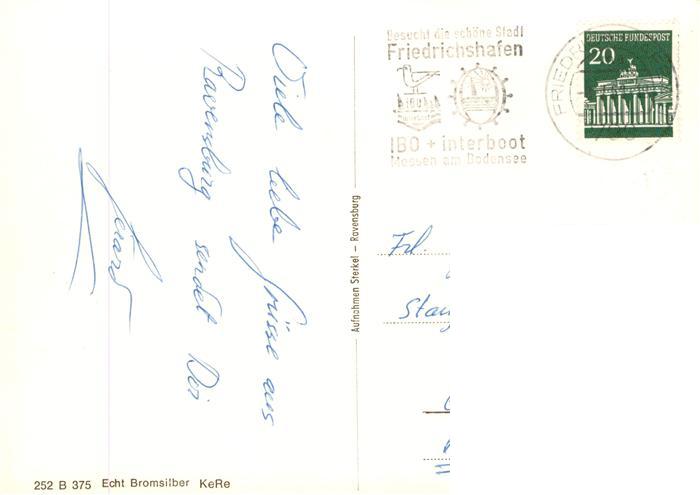 Viele liebe Grüsse aus
Ravensburg sendet Dir
Gerard
Aufnahmen Sterkel – Ravensburg
252 B 375 Echt Bromsilber KeRe
Besucht die schöne Stadt
Friedrichshafen
IBO + interboot
Messen am Bodensee
FRIEDR
DEUTSCHE BUNDESPOST
20
Frl.